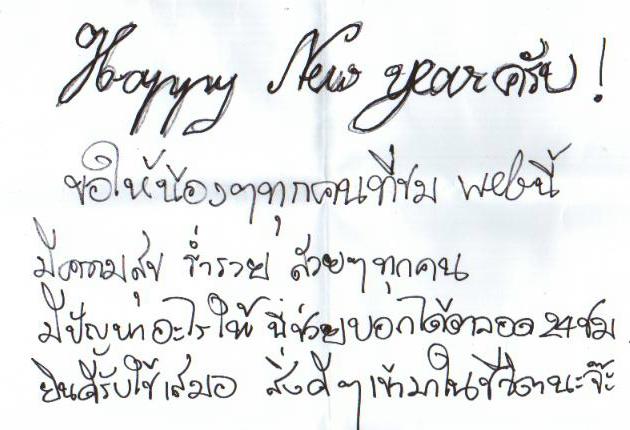 Happy New year ครับ !
ขอให้น้องๆทุกคนที่ชม webนี้
มีความสุข ร่ำรวย สวยๆทุกคน
มีปัญหาอะไรให้ พี่ช่วยบอกได้ตลอด 24ชม
ยินดีรับใช้เสมอ สิ่งดีๆเข้ามาในชีวิตนะจ๊ะ